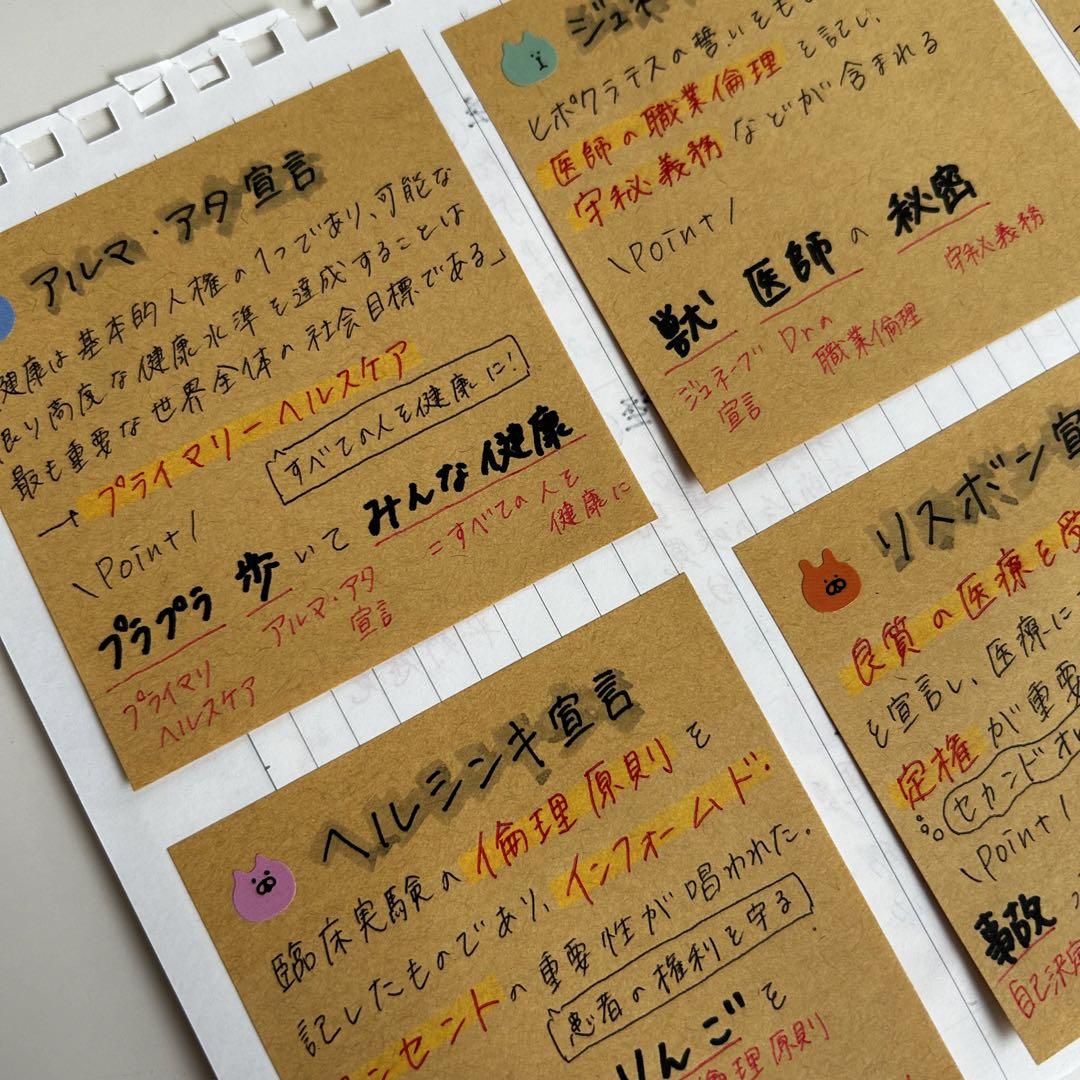 アルマ・アタ宣言
健康は基本的人権の1つであり、可能な
限り高度な健康水準を達成することは
最も重要な世界全体の社会目標である」
→プライマリーヘルスケア
すべての人を健康に!
\Point/
プラプラ歩いてみんな健康
プライマリ
ヘルスケア
アルマ・アタ
宣言
=すべての人を
健康に
ヒポクラテスの誓いをも
医師の職業倫理を記し、
守秘義務などが含まれる
\Point/
獣医師の秘密
ジュネーブ
宣言
Drの
職業倫理
守秘義務
ヘルシンキ宣言
臨床実験の倫理原則を
記したものであり、インフォームド・
コンセントの重要性が唱われた。
患者の権利を守る
りんごを
倫理原則
リスボン宣
良質の医療を受
を宣言し、医療に
定権が重要
セカンドオ
\Point/
事故
自己決定